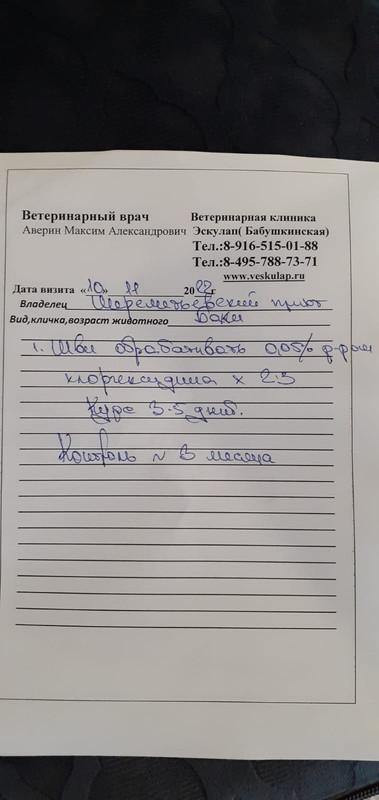 Ветеринарный врач Ветеринарная клиника
Аверин Максим Александрович Эскулап( Бабушкинская)
Тел.:8-916-515-01-88
Тел.:8-495-788-73-71
www.veskulap.ru
Дата визита «10» 11 2022г
Владелец Шереметьевский приют
Вид,кличка,возраст животного Баки
1. Швы обрабатывать 0,05% р-ром
хлоргексидина х 2-3
Курс 3-5 дней.
Контроль ~ 3 месяца